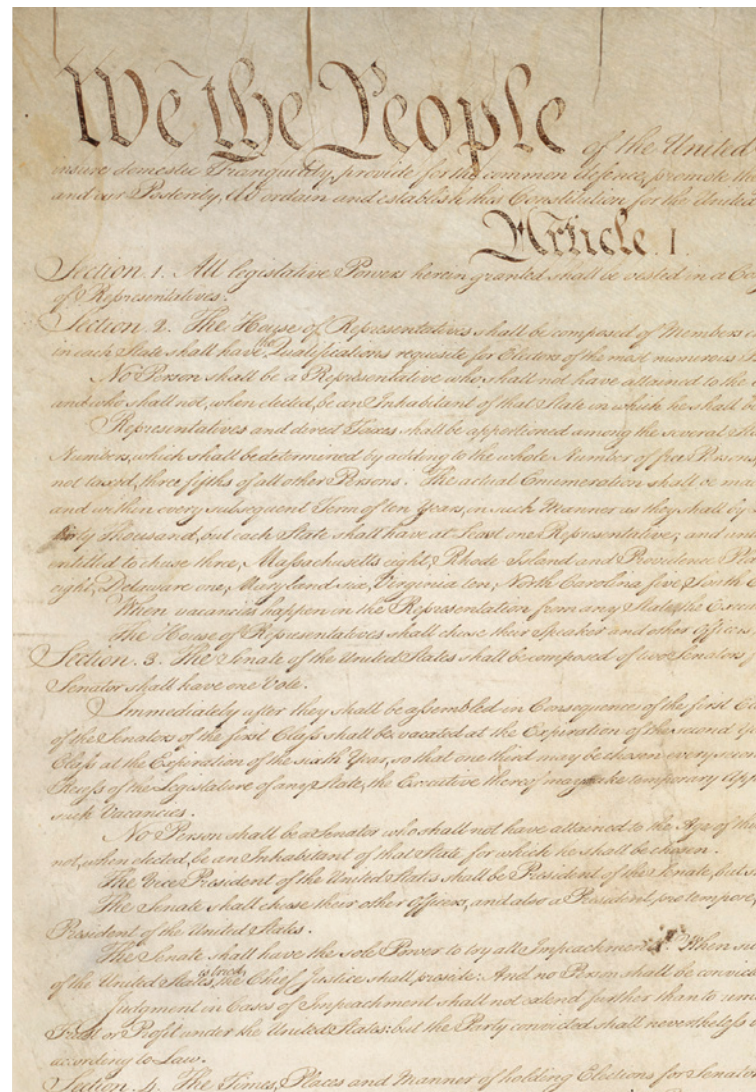 We the People of the United
insure domestic Tranquility, provide for the common defence, promote the
and our Posterity, do ordain and establish this Constitution for the United
Article. I.
Section. 1. All legislative Powers herein granted shall be vested in a Co
of Representatives.
Section. 2. The House of Representatives shall be composed of Members c
in each State shall have the Qualifications requisite for Electors of the most numerous
No Person shall be a Representative who shall not have attained to the
and who shall not, when elected, be an Inhabitant of that State in which he shall be
Representatives and direct Taxes shall be apportioned among the several
Numbers, which shall be determined by adding to the whole Number of free Persons,
not taxed, three fifths of all other Persons. The actual Enumeration shall be ma
and within every subsequent Term of ten Years, in such Manner as they shall by
thirty Thousand, but each State shall have at Least one Representative; and un
entitled to chuse three, Massachusetts eight, Rhode Island and Providence Pla
eight, Delaware one, Maryland six, Virginia ten, North Carolina five, South C
When vacancies happen in the Representation from any State, the Execu
The House of Representatives shall chuse their Speaker and other Officers;
Section. 3. The Senate of the United States shall be composed of two Senators
Senator shall have one Vote.
Immediately after they shall be assembled in Consequence of the first Ele
of the Senators of the first Class shall be vacated at the Expiration of the second Y
Class at the Expiration of the sixth Year, so that one third may be chosen every secon
Recess of the Legislature of any State, the Executive thereof may make temporary App
such Vacancies.
No Person shall be a Senator who shall not have attained to the Age of thi
not, when elected, be an Inhabitant of that State for which he shall be chosen.
The Vice President of the United States shall be President of the Senate, but sh
The Senate shall chuse their other Officers, and also a President pro tempore,
President of the United States.
The Senate shall have the sole Power to try all Impeachments. When si
of the United States is tried, the Chief Justice shall preside: And no Person shall be convic
Judgment in Cases of Impeachment shall not extend further than to rem
Trust or Profit under the United States: but the Party convicted shall nevertheless
according to Law.
Section. 4. The Times, Places and Manner of holding Elections for Senator